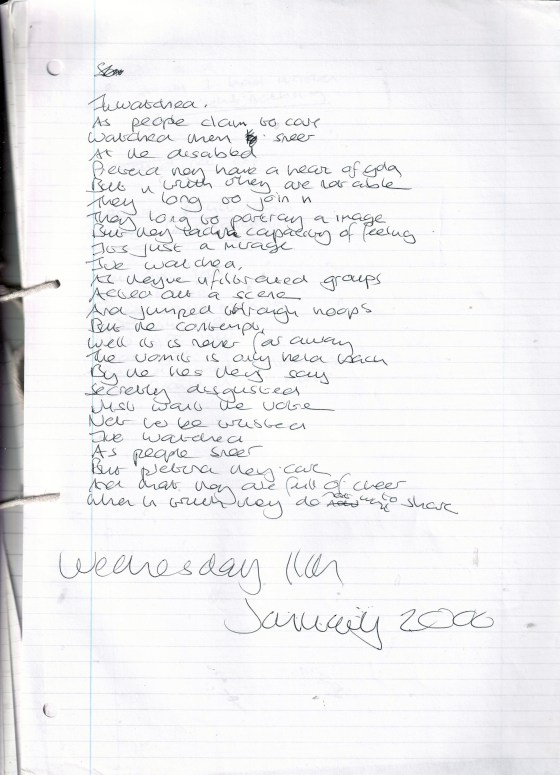 I've watched.
As people claim to care
Watched them sneer
At the disabled
Pretend they have a heart of gold
But in truth they are not able
They long to join in
They long to portray a image
But they lack capacity of feeling
It's just a mirage
I've watched.
As they've infiltrated groups
Acted out a scene
And jumped through hoops
But the contempt,
Well it is never far away
The vomit is only held back
By the lies they say
Secretly disgusted
Just want the vote
Not to be trusted
I've watched
As people sneer
But pretend they care
And that they are full of cheer
When in truth they do not want to share
Wednesday 11th
January 2006